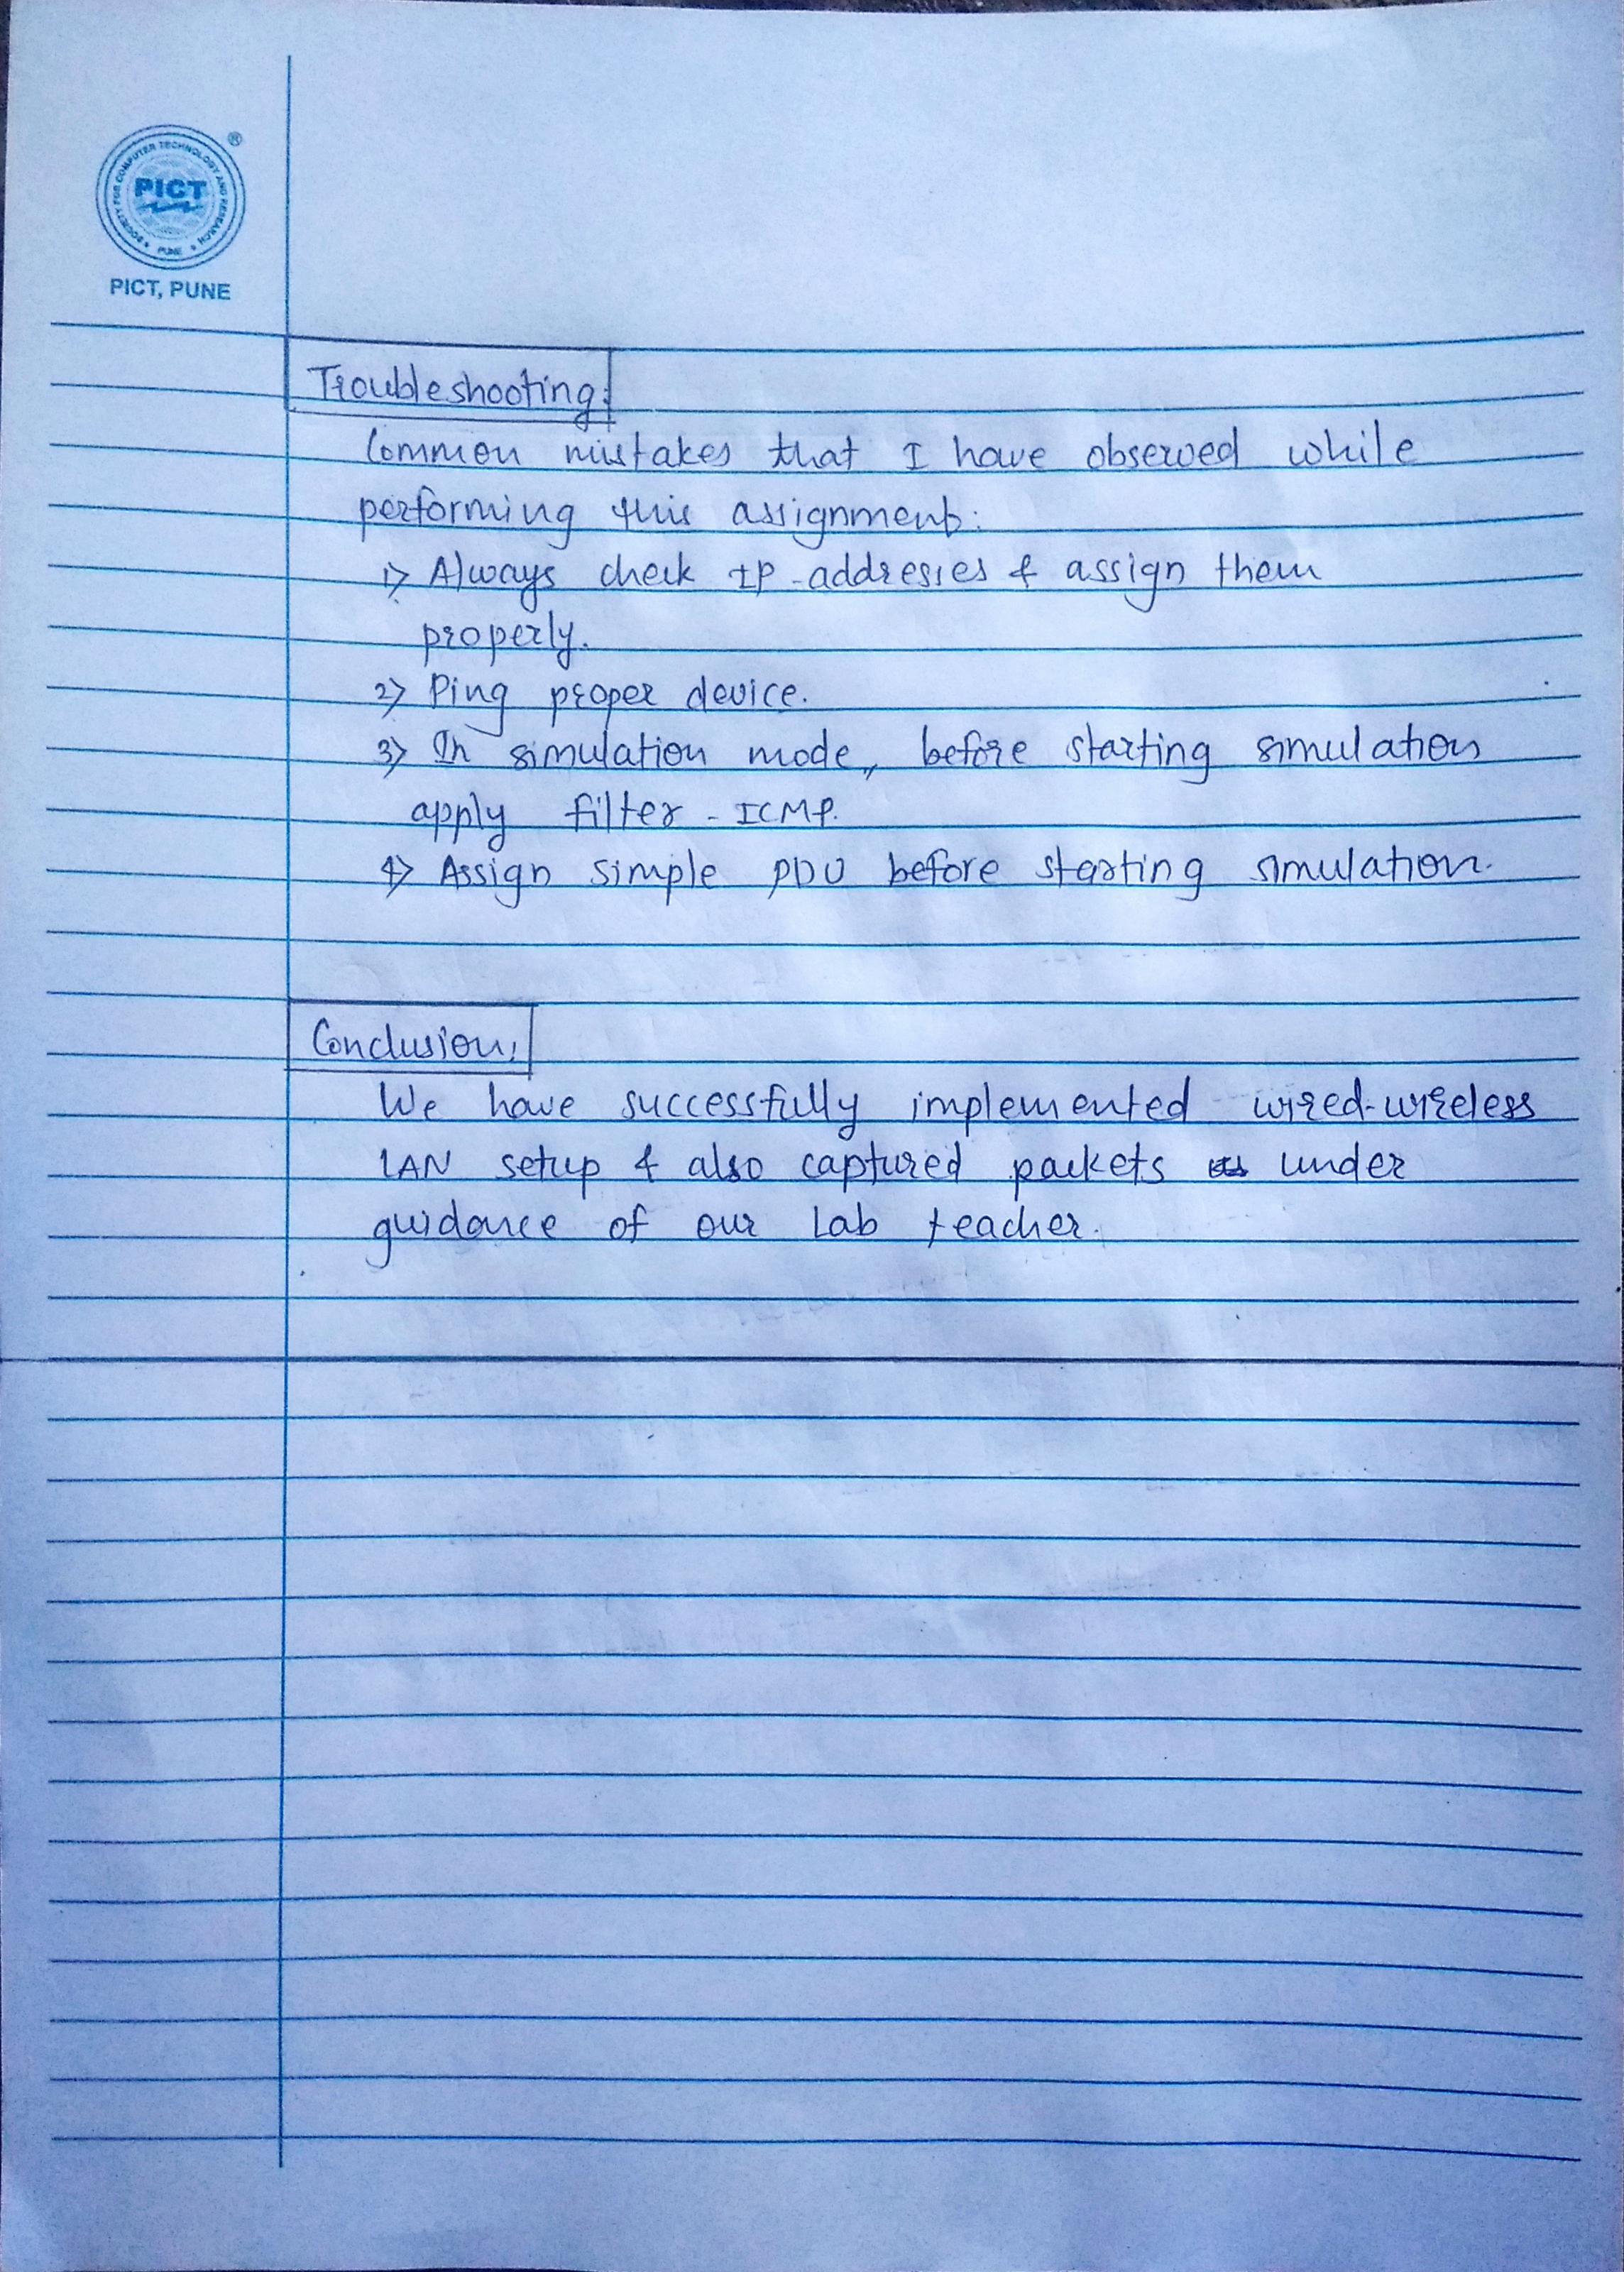 SOCIETY FOR COMPUTER TECHNOLOGY AND RESEARCH
PICT
PUNE
®
PICT, PUNE
Troubleshooting:
Common mistakes that I have observed while
performing this assignment:
1> Always check IP-addresses & assign them
properly.
2> Ping proper device.
3> In simulation mode, before starting simulation
apply filter - ICMP.
4> Assign simple PDU before starting simulation.
Conclusion:
We have successfully implemented wired-wireless
LAN setup & also captured packets under
guidance of our Lab teacher.